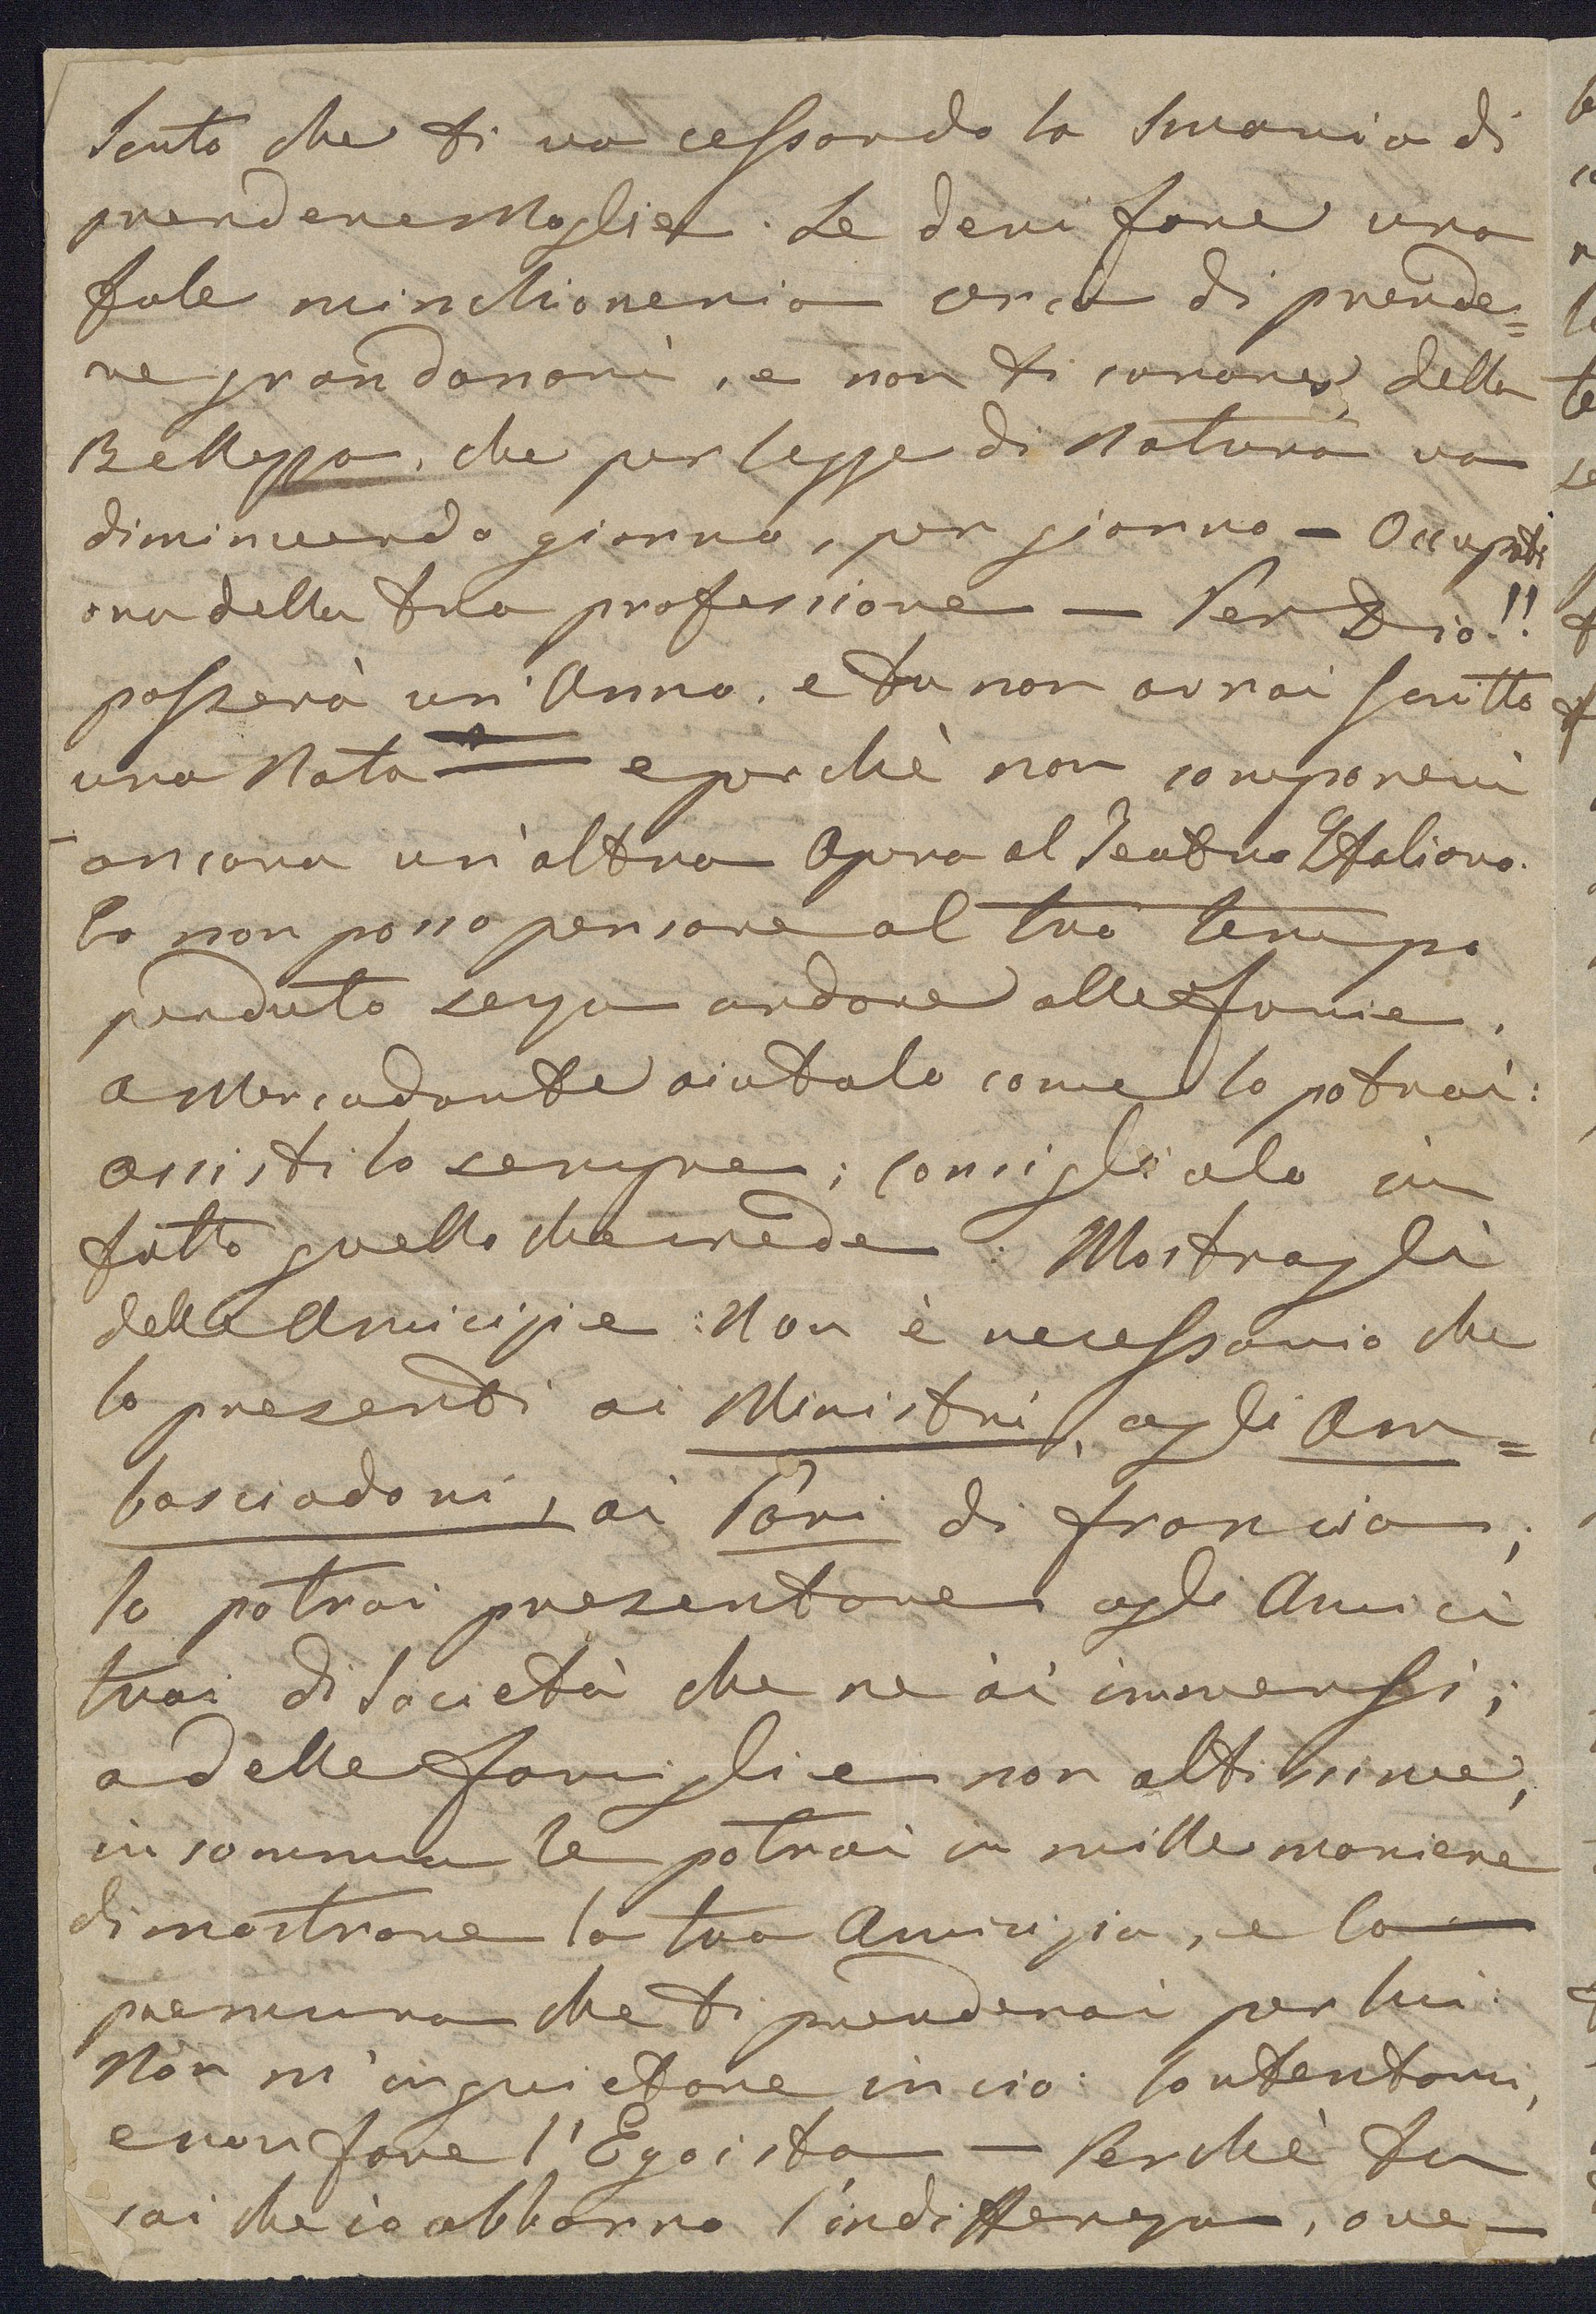 Sento che ti va cessando la smania di
prendere Moglie. Se devi fare una
tale minchioneria cerca di prende=
re gran danari, e non ti curare della
Bellezza, che per legge di Natura va
diminuendo giorno, per giorno – Occupati
ora della tua professione — Per Dio!!
passerà un'Anno, e tu non avrai scritto
una Nota — e perchè non componevi
ancora un'altra Opera al Teatro Italiano.
Io non posso pensare al tuo tempo
perduto senza andare alle furie.
A Mercadante aiutalo come lo potrai:
assistilo sempre; consiglialo in
tutto quello che crede: Mostragli
della Amicizie: Non è necessario che
lo presenti ai Ministri, agli Am=
basciadori, ai Pari di Francia;
lo potrai presentare agli Amici
tuoi di Società che ne ài immensi;
a delle famiglie non altissime,
in somma le potrai in mille maniere
dimostrare la tua Amicizia, e la
premura che ti prenderai per lui:
Non m'inquietare in ciò: contentami,
e non fare l'Egoista — Perchè tu
sai che io abborro l'indifferenza, ove